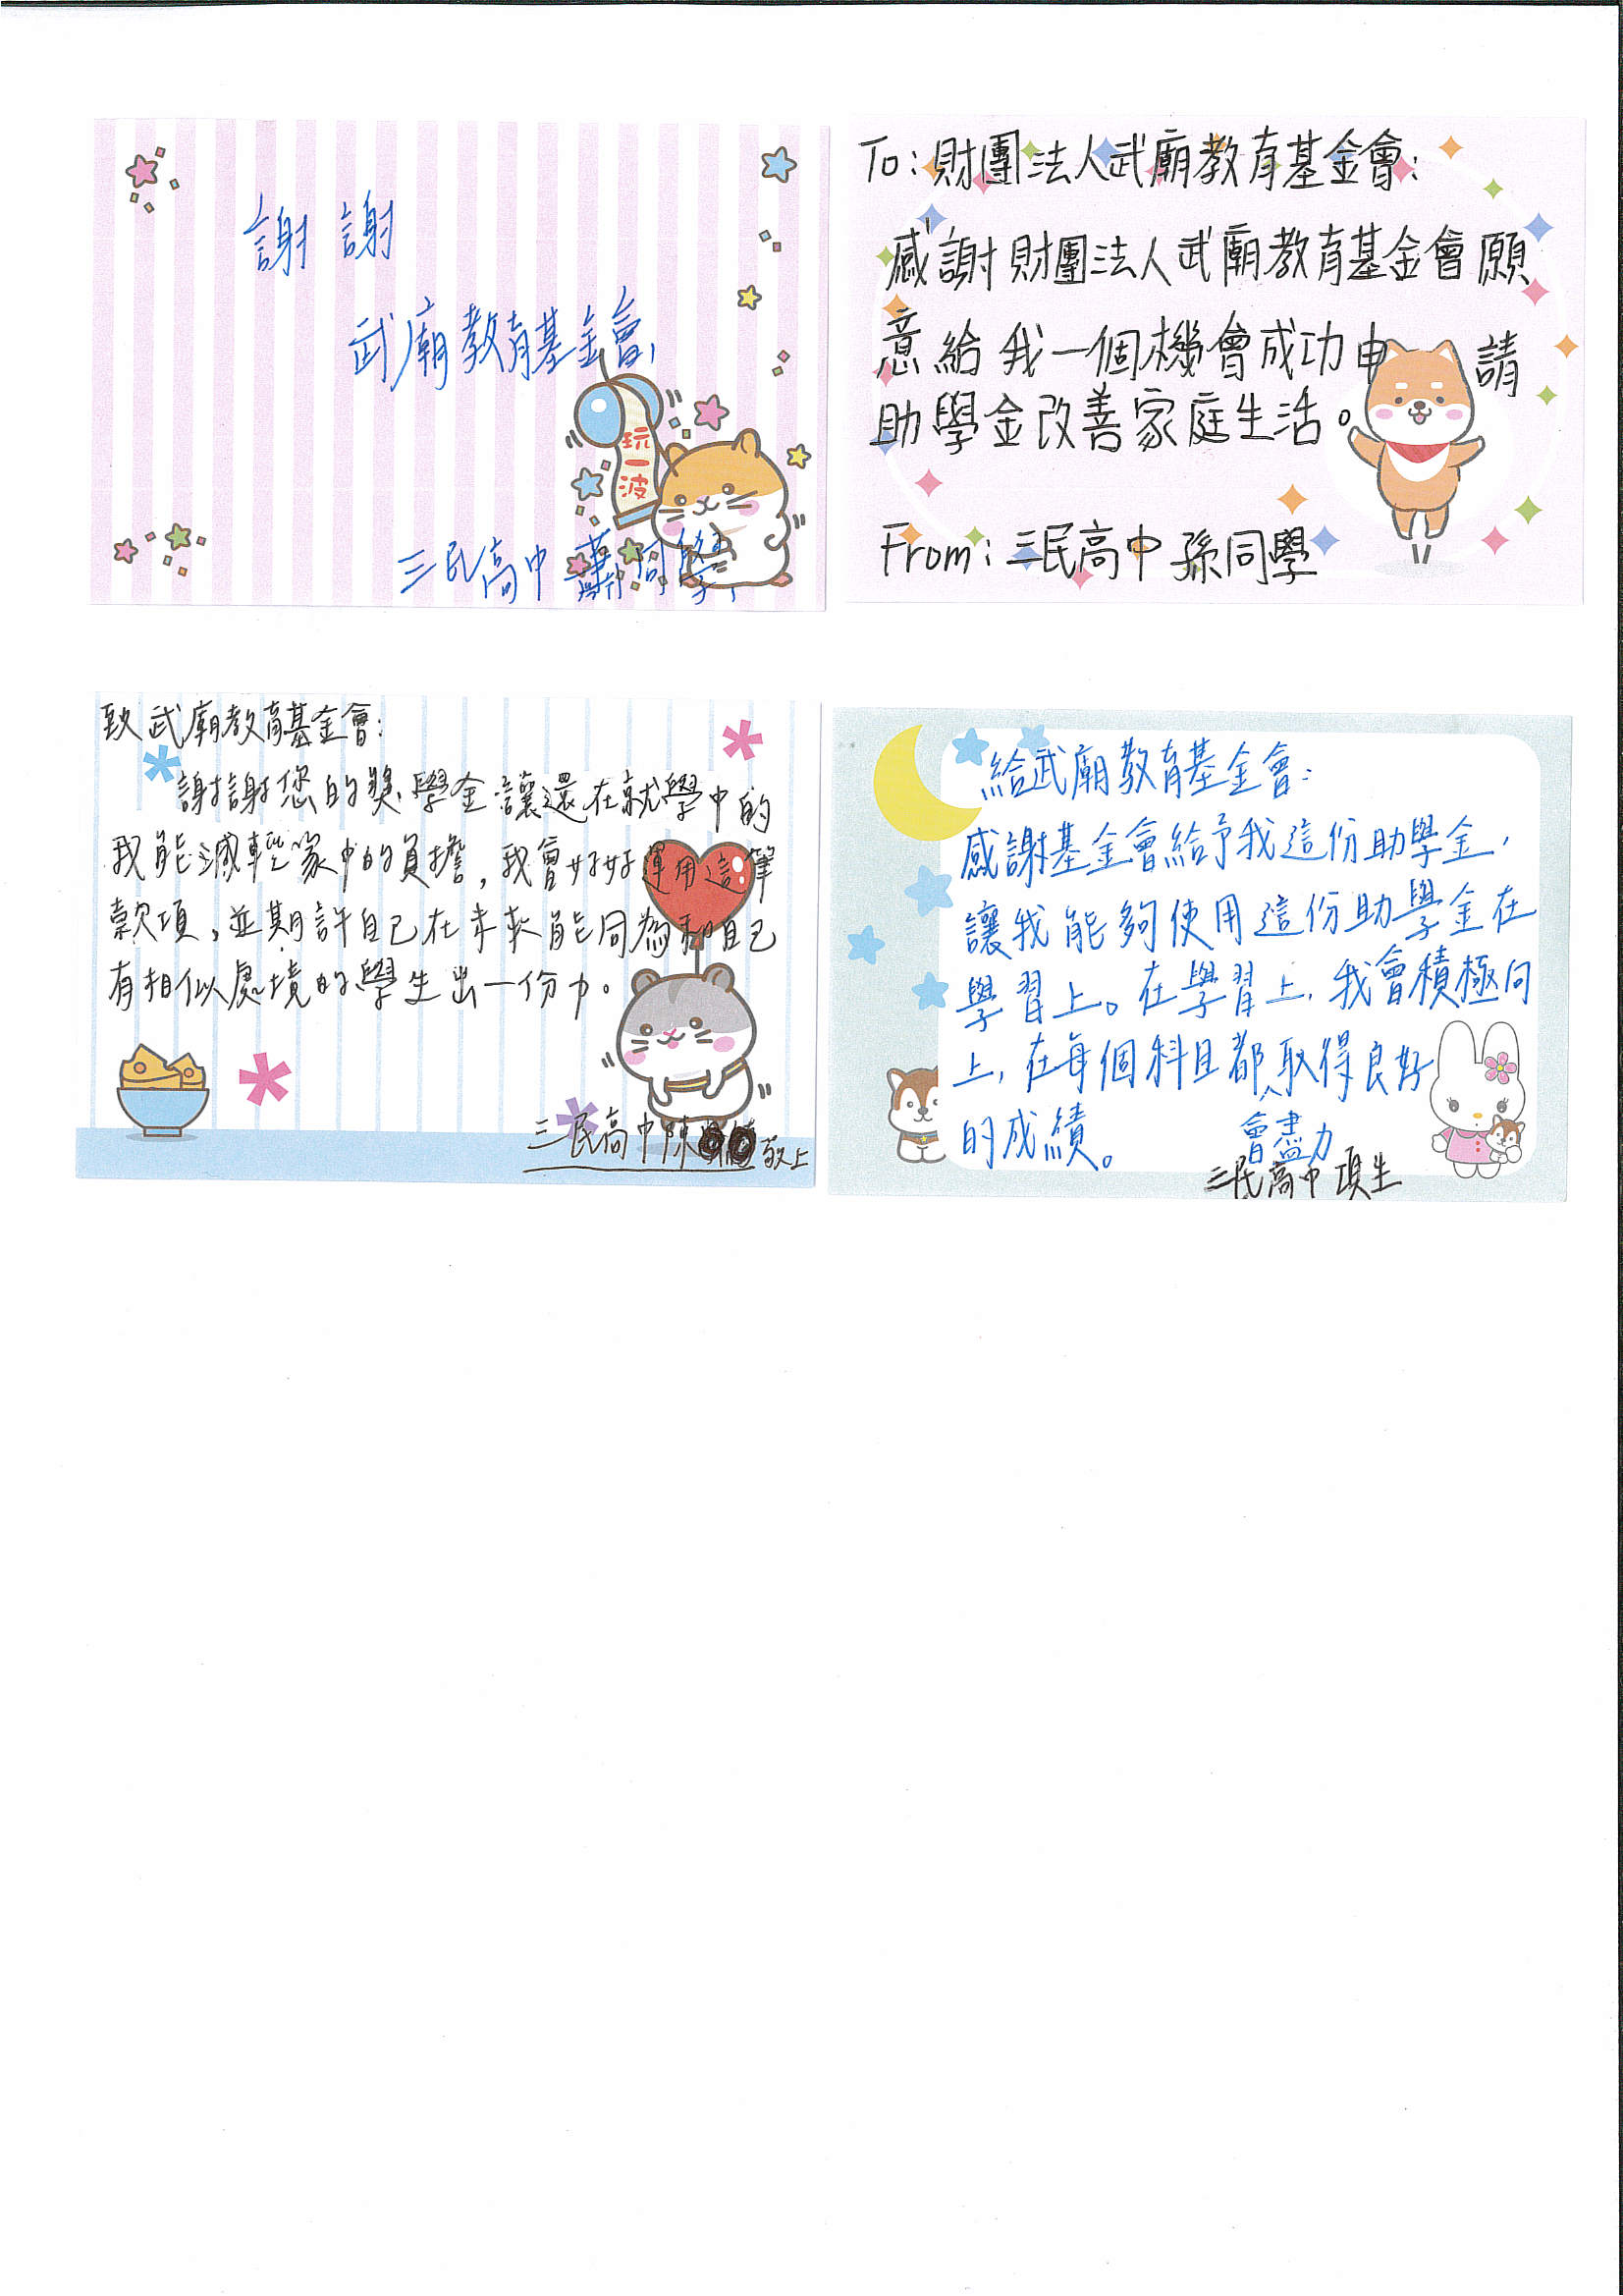 謝謝
武廟教育基金會,
玩一波
三民高中 蕭同學,
To:財團法人武廟教育基金會:
感謝財團法人武廟教育基金會願
意給我一個機會成功申請
助學金改善家庭生活。
From:三民高中孫同學
致武廟教育基金會:
謝謝您的獎學金讓還在就學中的
我能減輕家中的負擔,我會好好運用這筆
款項,並期許自己在未來能同為和自己
有相似處境的學生出一份力。
三民高中陳 敬上
給武廟教育基金會:
感謝基金會給予我這份助學金,
讓我能夠使用這份助學金在
學習上。在學習上,我會積極向
上,在每個科目都取得良好
會盡力
的成績。
三民高中 項生